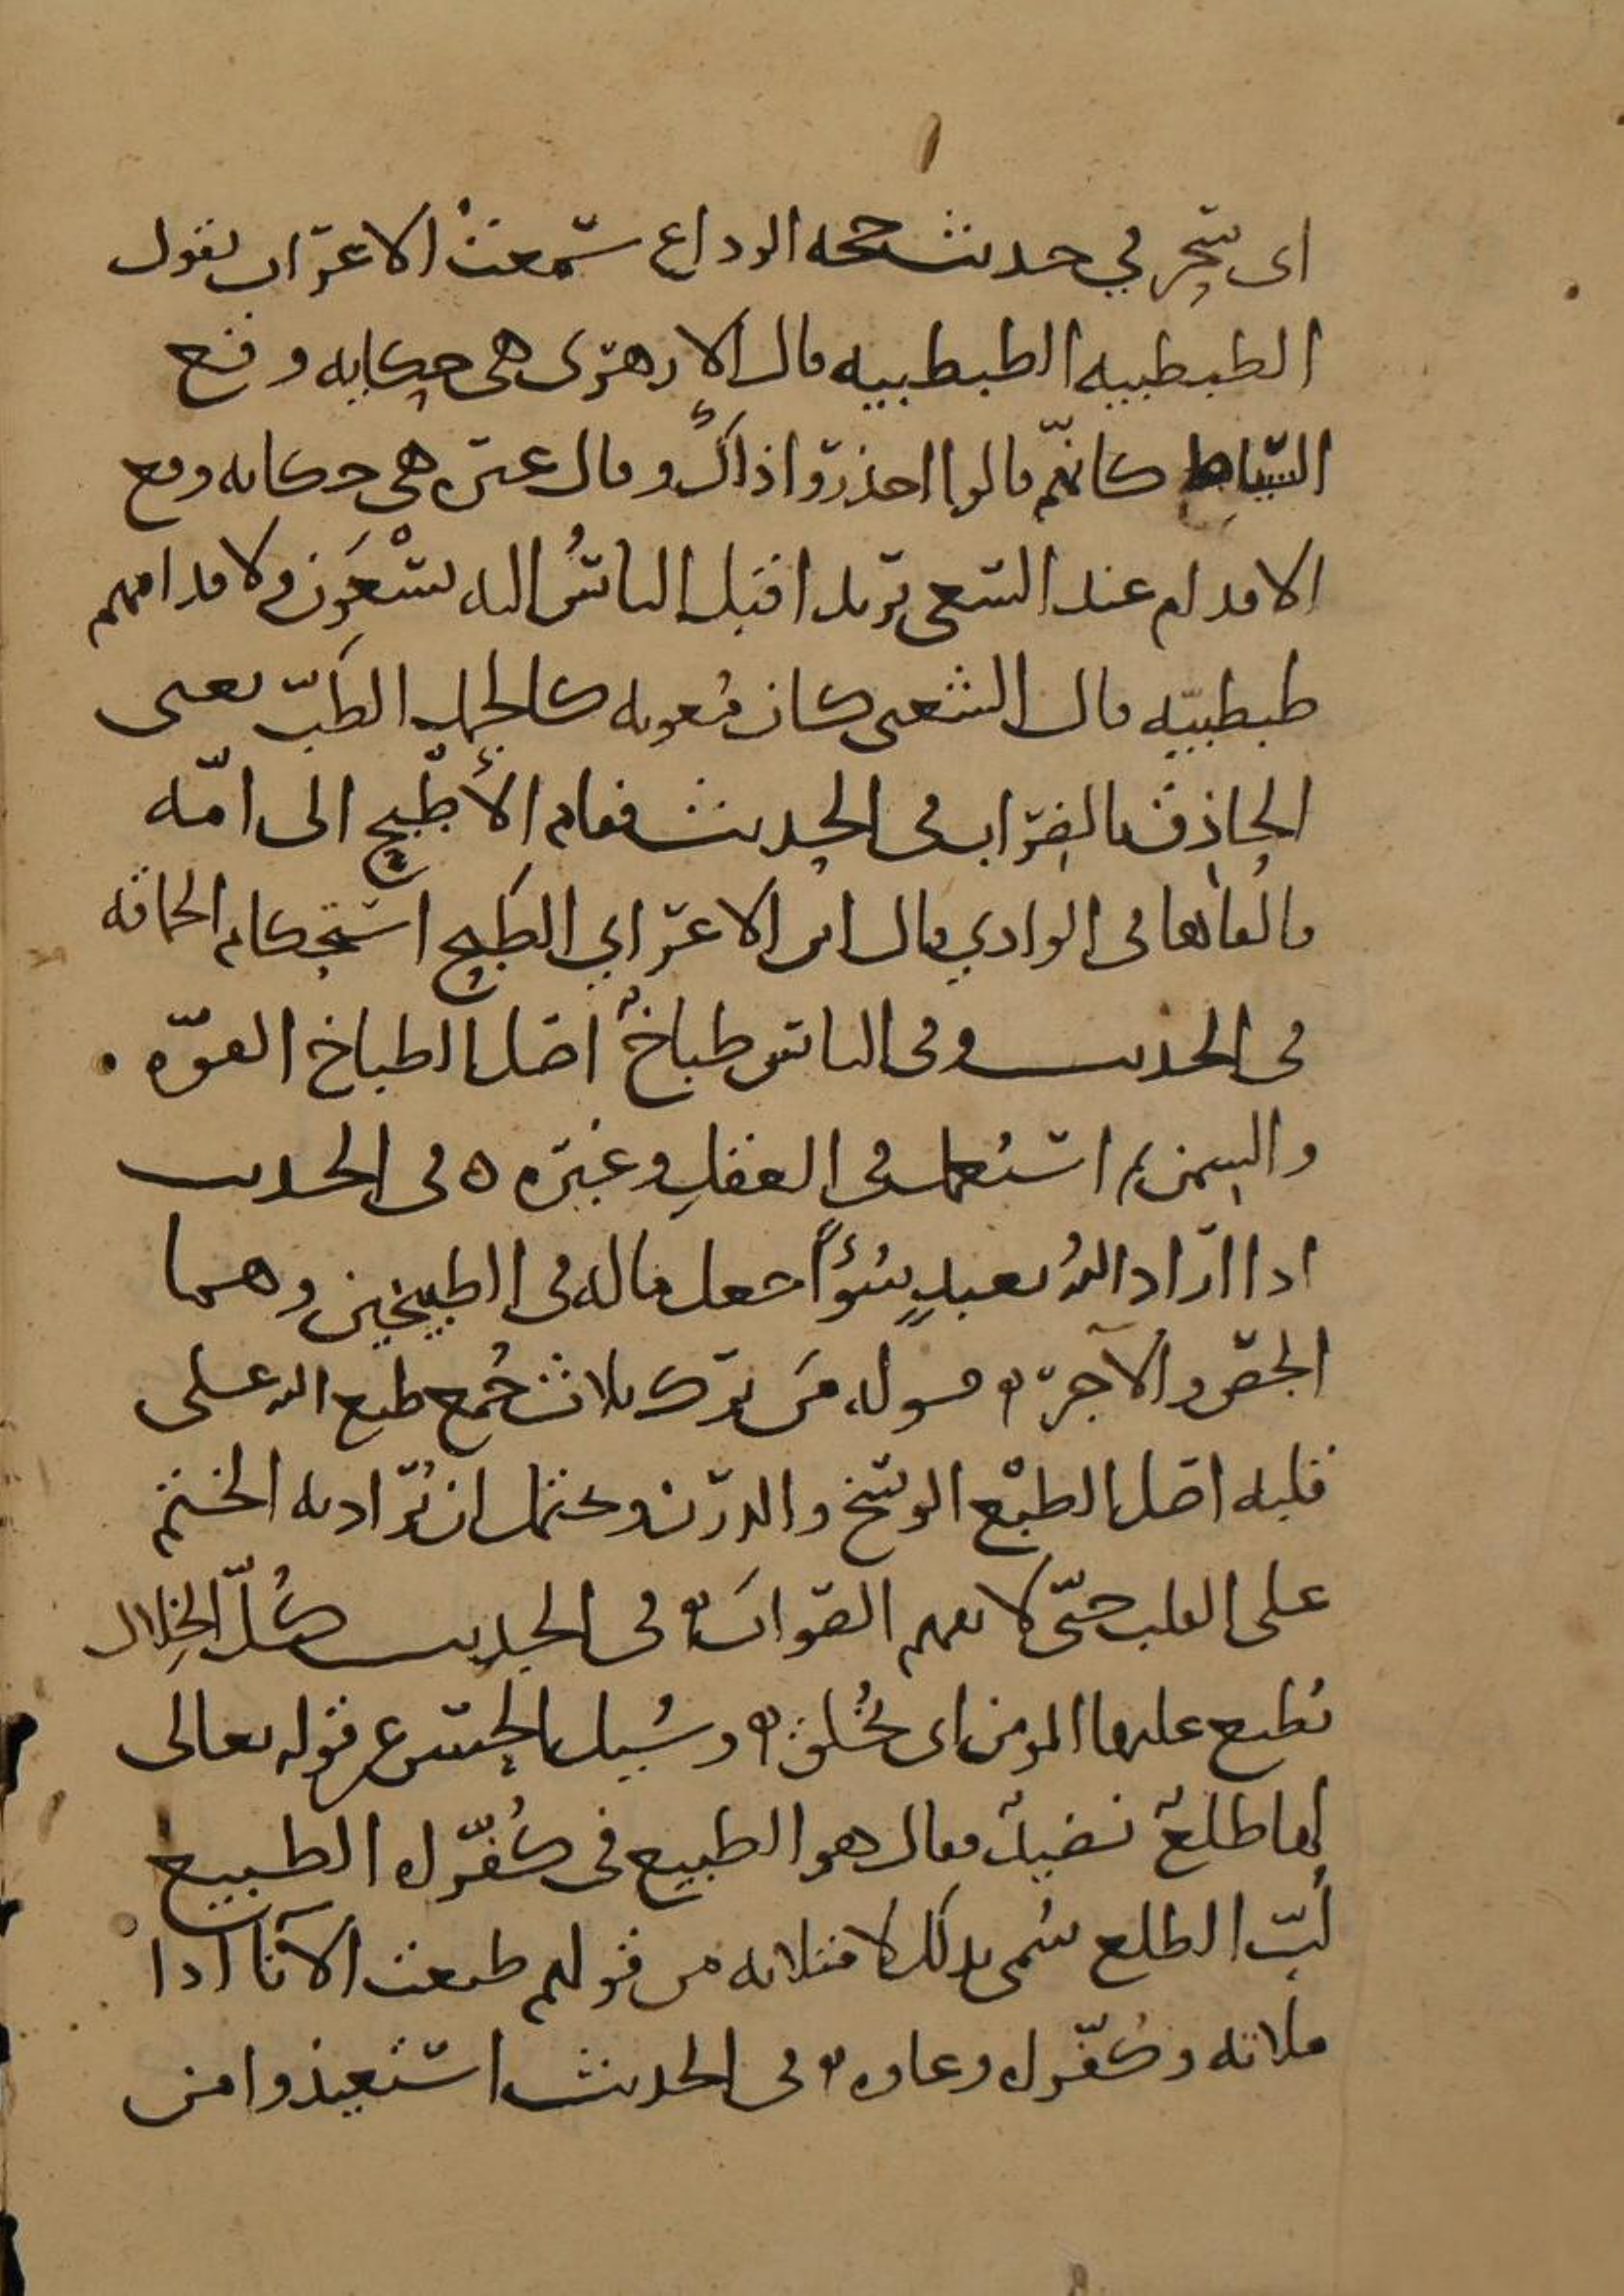 اى سحر في حديث حجه الوداع سمعت الاعراب يقول
الطبطبيه الطبطبيه قال الازهرى هى حكايه وقع
السياط كانهم قالوا احذروا ذاك وقال غيره هى حكايه وقع
الاقدام عند السعى يريد اقبل الناسُ اليه يسْعَون ولاقدامهم
طبطبيّه قال الشعبى كان معويه كالجمل الطَبّ يعنى
الحاذق بالضراب فى الحديث فقام الأطْبَح الى امّه
فالقاها فى الوادي قال ابن الاعرابي الطَبح استحكام الحماقه
فى الحديث وفى الناس طباخٌ اصل الطباخ القوّه
والسمن ثم استعمل فى العقل وغيره ه فى الحديث
اذا اراد اللهُ بعبدٍ سُوْءًا جعل ماله فى الطبيخين وهما
الجص والآجر ه قوله من ترك ثلاث جُمع طبع الله على
قلبه اصل الطبْع الوسخ والدرن ويحتمل ان يُراد به الختم
على القلب حتّى لا يفهم الصوابَ ه فى الحديث كُلّ الخِلال
يُطبع عليها المومن اى يُخلق ه وسُيل الحسن عن قوله تعالى
لها طلعٌ نضيدٌ فقال هو الطبيع فى كُفُرّاه الطبيع
لُبّ الطلع سُمى بذلك لامتلائه من قولهم طبعت الاناْ اذا
ملاته وكُفُرّاه وعاوه ه فى الحديث استعيذوا من